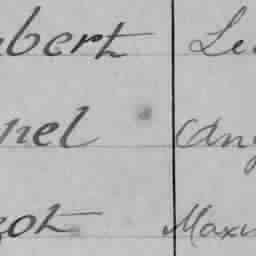 bert Le
nel Ang
zot Maxi